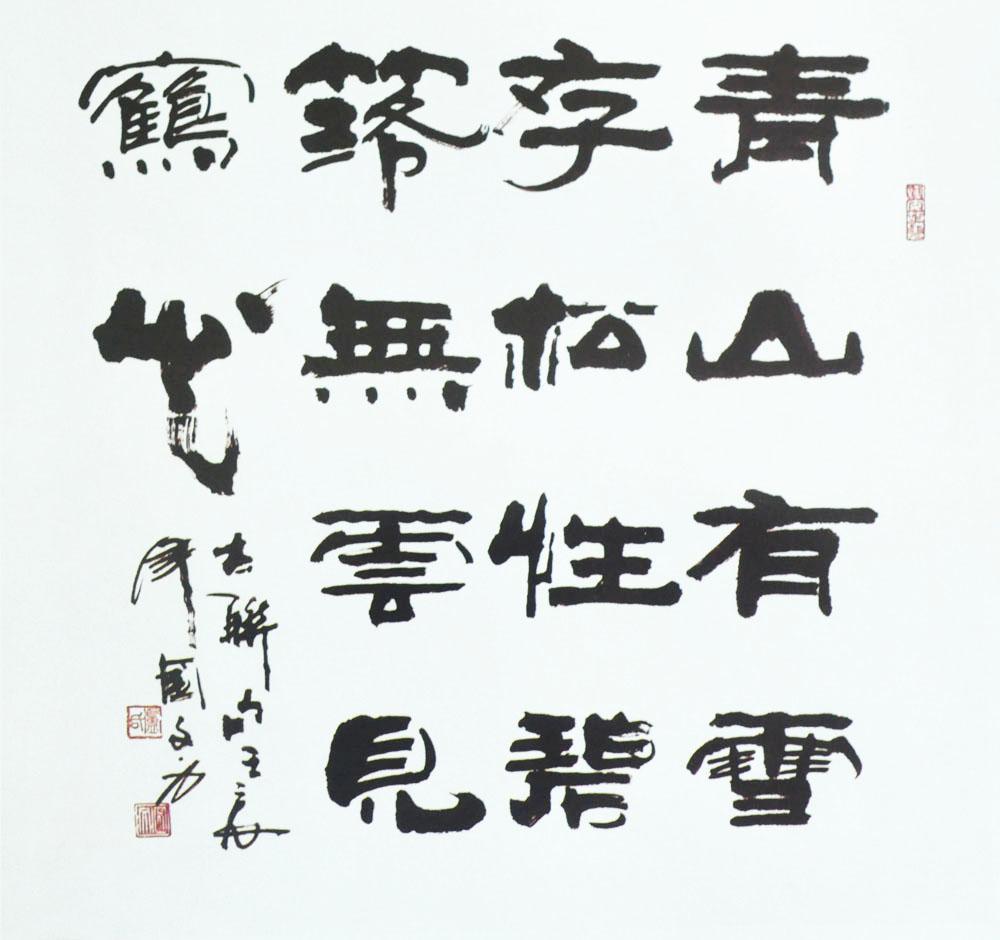 青山有雪
存松性碧
落無雲見
鶴心
古聯
國文